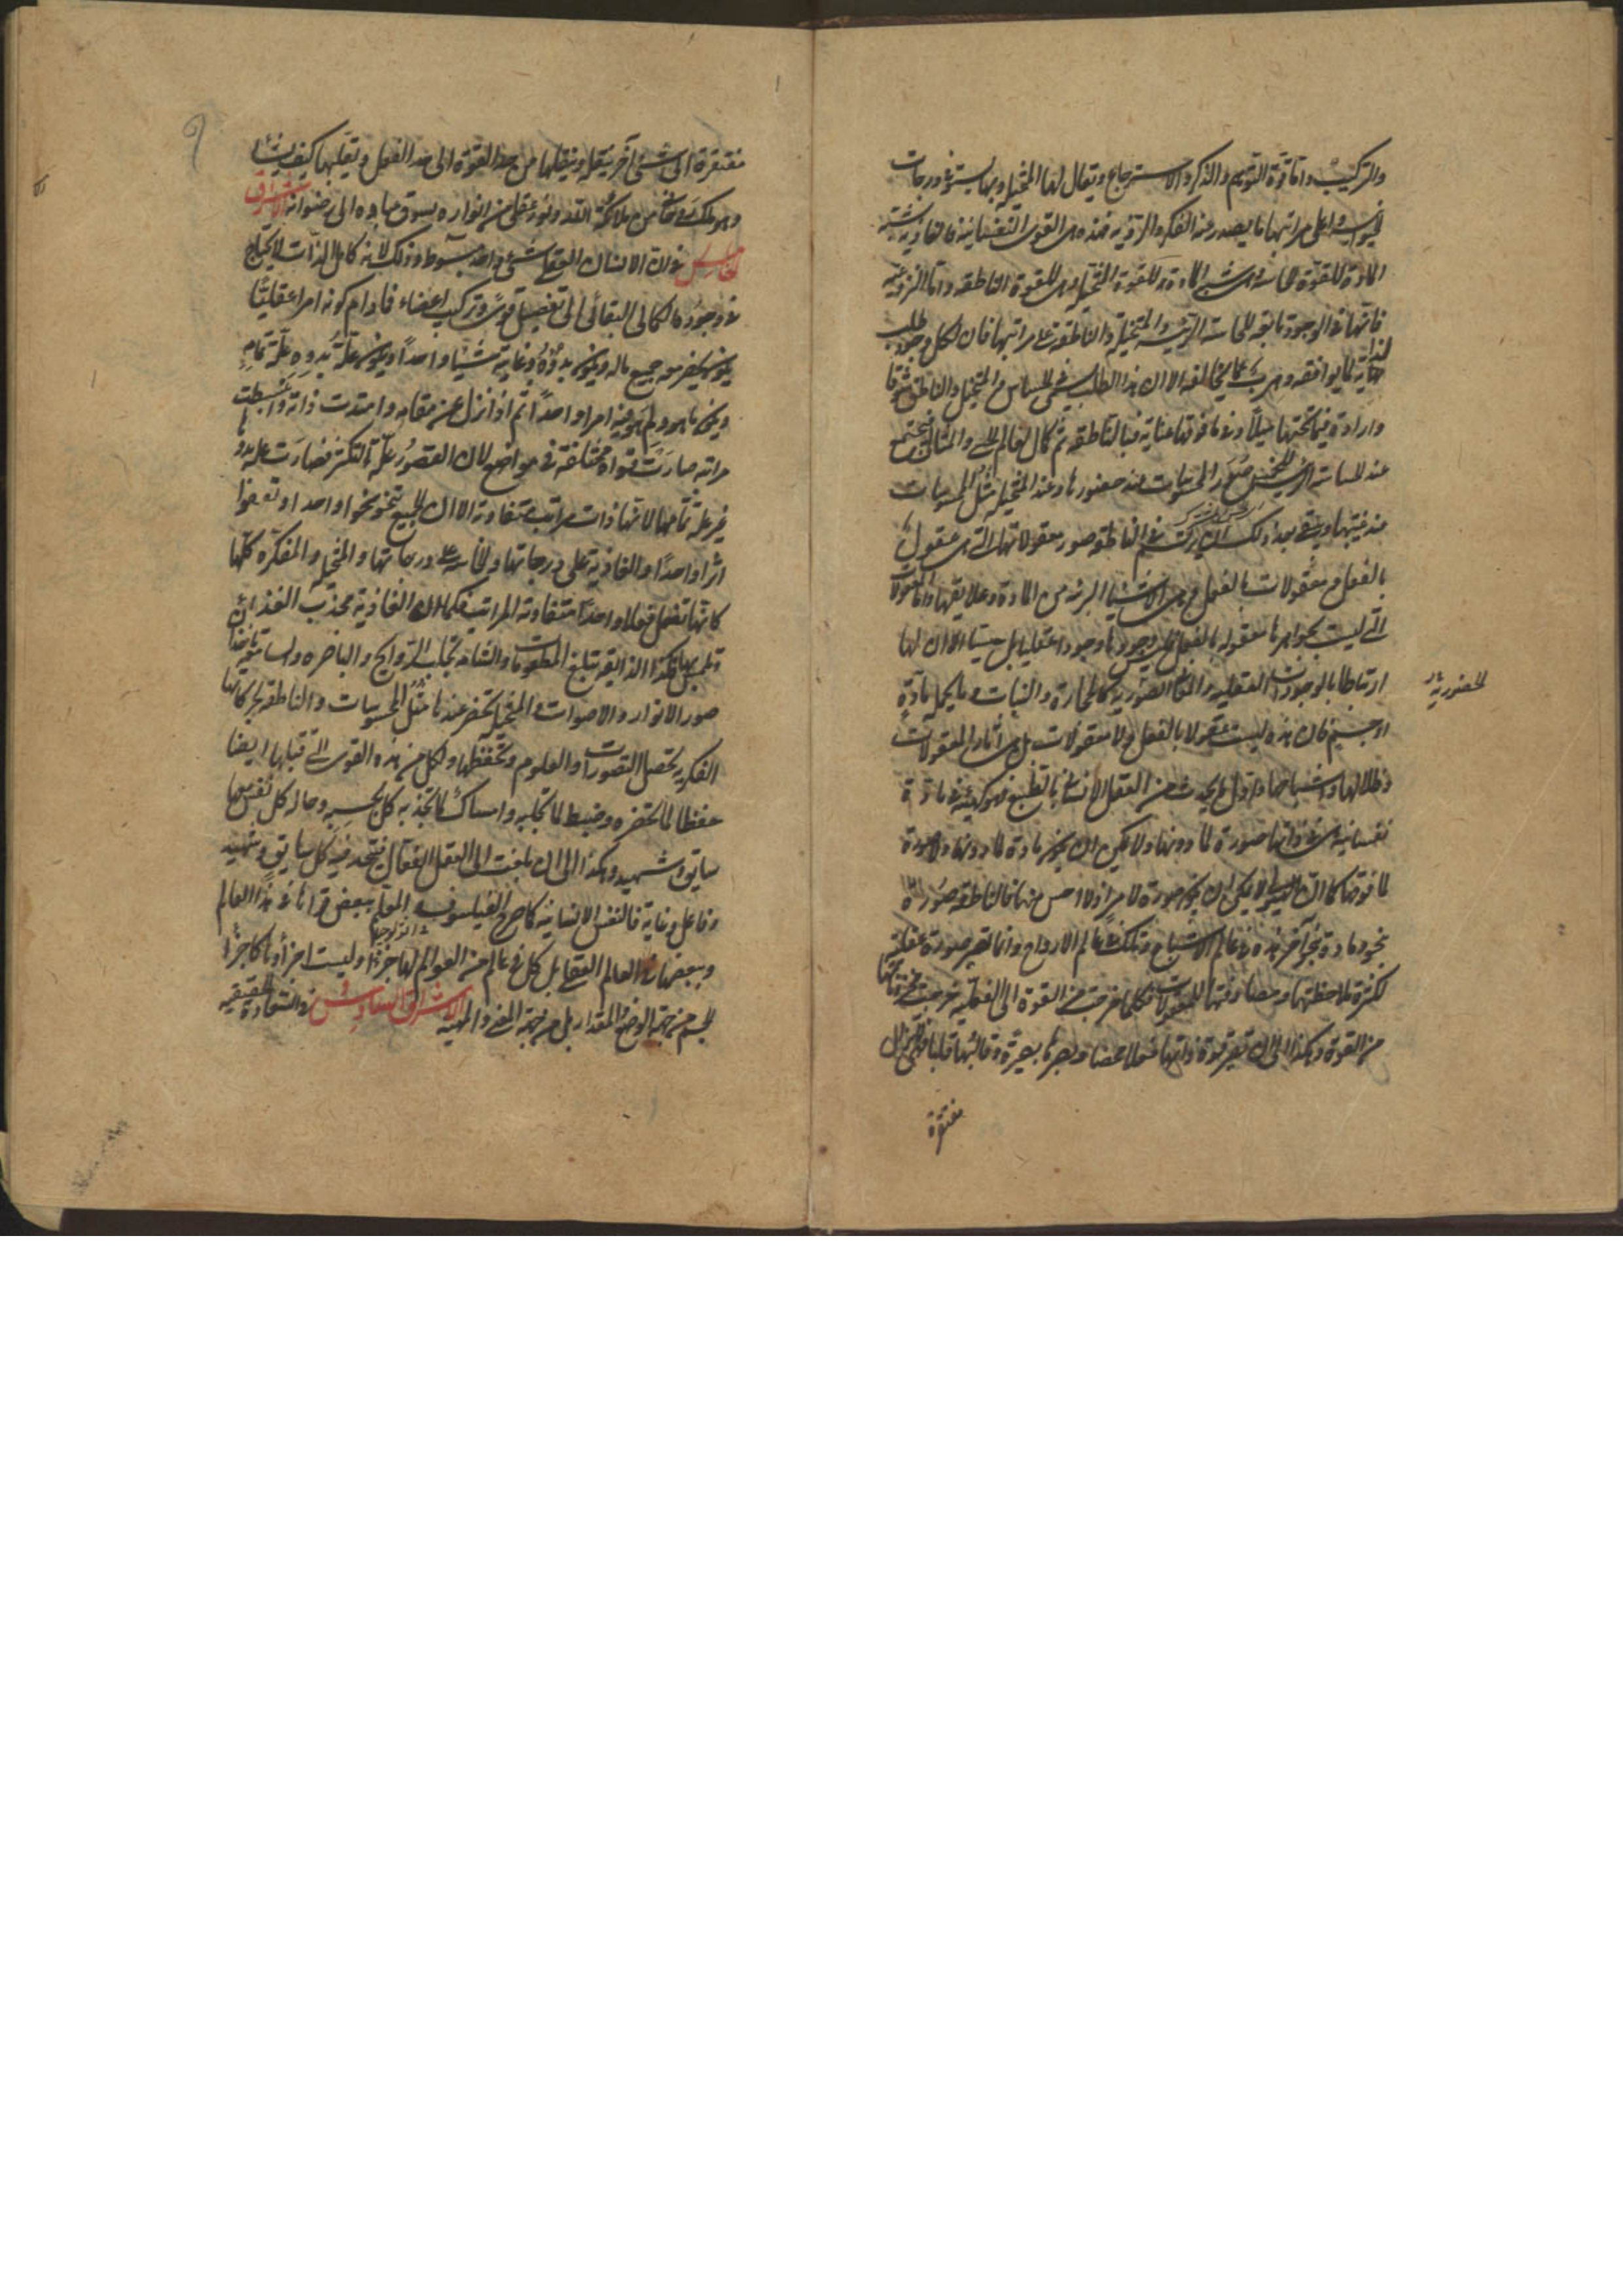 والتركيب واما قوة التوهم والذكر والاسترجاع ويقال لها المتخيلة وبها يستوفى درجات
الحيوان واعلى مراتبها ما يصدر عنه الفكر والروية فهذه هى القوى النفسانية فالغاذية شبه
المادة للقوة الحاسة وهى شبه المادة للقوة المتخيلة وهى للقوة الناطقة واما النزوعية
فانها فى الوجود تابعة للحاسة الرئيسة والمتخيلة والناطقة على مراتبها فان لكل وجود طلب
لذاته لما يوافقه وهرب عما يخالفه الا ان هذا الطلب سمى فى الحساس والمتخيل والناطق شوقا
وارادة فيما تحتها ميلا وفيما فوقها عناية فبالناطقة تم كمال العالم الحسى والمثالى فيجتمع
عند الحاسة الرئيس صور المحسوسات عند حضورها وعند المتخيلة مثل المحسوسات
عند غيبتها وبقى بعد ذلك ان يرتسم فى الناطقة صور معقولاتها التى هى عقول
بالفعل ومعقولات بالفعل وهى الاشياء البريئة من المادة وعلايقها واما المعقولات
التى ليست بجواهرها معقولة بالفعل وليس وجودها وجودا عقليا بل حسيا الا ان لها
ارتباطا بالوجودات العقلية والمثل الصورية كالحجارة والنبات وما يحل مادة
الحضورية
او جسم فان هذه ليست عقولا بالفعل ولا معقولات بل هى آثار المعقولات
وظلالها واشباحها واول ما يحدث من العقل الانسانى بالطبع فهو كهيئة فى مادة
نفسانية هى فى ذاتها صورة لما دونها ولا يمكن ان يكون مادة لما دونها ولا صورة
لما فوقها كما ان الهيولى لا يمكن ان يكون صورة لامر اذ لا اخس منها فالناطقة صورة
بنحو ومادة بنحو آخر هذه فى عالم الاشباح وتلك فى عالم الارواح وانما تصير صورة عقلية
لكثرة ملاحظتها ومصادفتها للمعقولات فكلما خرجت من القوة الى الفعلية خرجت
من القوة وهكذا الى ان تصير قوة ذاتها فعلا محضا وبصرها بصيرة وقالبها قلبا
مفتقرة
مفتقرة الى شئ آخر ينقله وينقلها من حد القوة الى حد الفعل ويقلبها كيف يشاء
وهو ملك من ملائكة الله ونور عقلى من انواره يسوق عباده الى رضوانه الاشراق
الخامس فى ان الانسان العقلى شئ واحد مبسوط وذلك لانه كامل الذات لا يحتاج
فى وجوده الكمالى البقائى الى تفصيل قوى وتركيب اعضاء فما دام كونه امرا عقليا
يكون جميع ما له ويكون بدؤه وغايته شيئا واحدا ويكون علة بدوه علة تمامه
وفيه ما هو ولم هو فيه امرا واحدا ثم اذا نزل عن مقامه وامتدت ذاته وانبسطت
مراتبه صارت قواه مختلفة فى مواضع لان القصور علة التكثر فصارت علة بدوها
غير علة تمامها لانها ذات مراتب متفاوتة الا ان الجميع تنحو نحوا واحدا وتقفوا
اثرا واحدا والغاذية على درجاتها والحاسة على درجاتها والمتخيلة والمفكرة كلها
كانها تفعل فعلا واحدا متفاوتة المراتب فكما ان الغاذية تجذب الغذاء
فهكذا الذايقة تبلغ المطعومات والشامة تجلب الروايح والباصرة والسامعة تاخذ
صور الانوار والاصوات والمتخيلة تحضر عندها مثل المحسوسات والناطقة بحركاتها
الفكرية تحصل التصورات والعلوم وتحفظها ولكل من هذه القوى التى قبلها ايضا
حفظا لما تحضره وضبط لما تجلبه وامساك لما تجذبه كل بحسبه وحال كل نفس معها
سايق وشهيد وهكذا الى ان بلغت الى العقل الفعال فيتحد فيه كل سايق وشهيد
وفاعل وغاية فالنفس الانسانية كما صرح الفيلسوف المعلم ببعض قواها فى هذا العالم
فى اثولوجيا
وببعضها فى العالم العقلى بل كل فى عالم من العوالم لها جزء وليست اجزاؤها كاجزاء
الجسم من جهة الوضع والمقدار بل من جهة المعنى والمهية الاشراق السادس فى السعادة الحقيقية